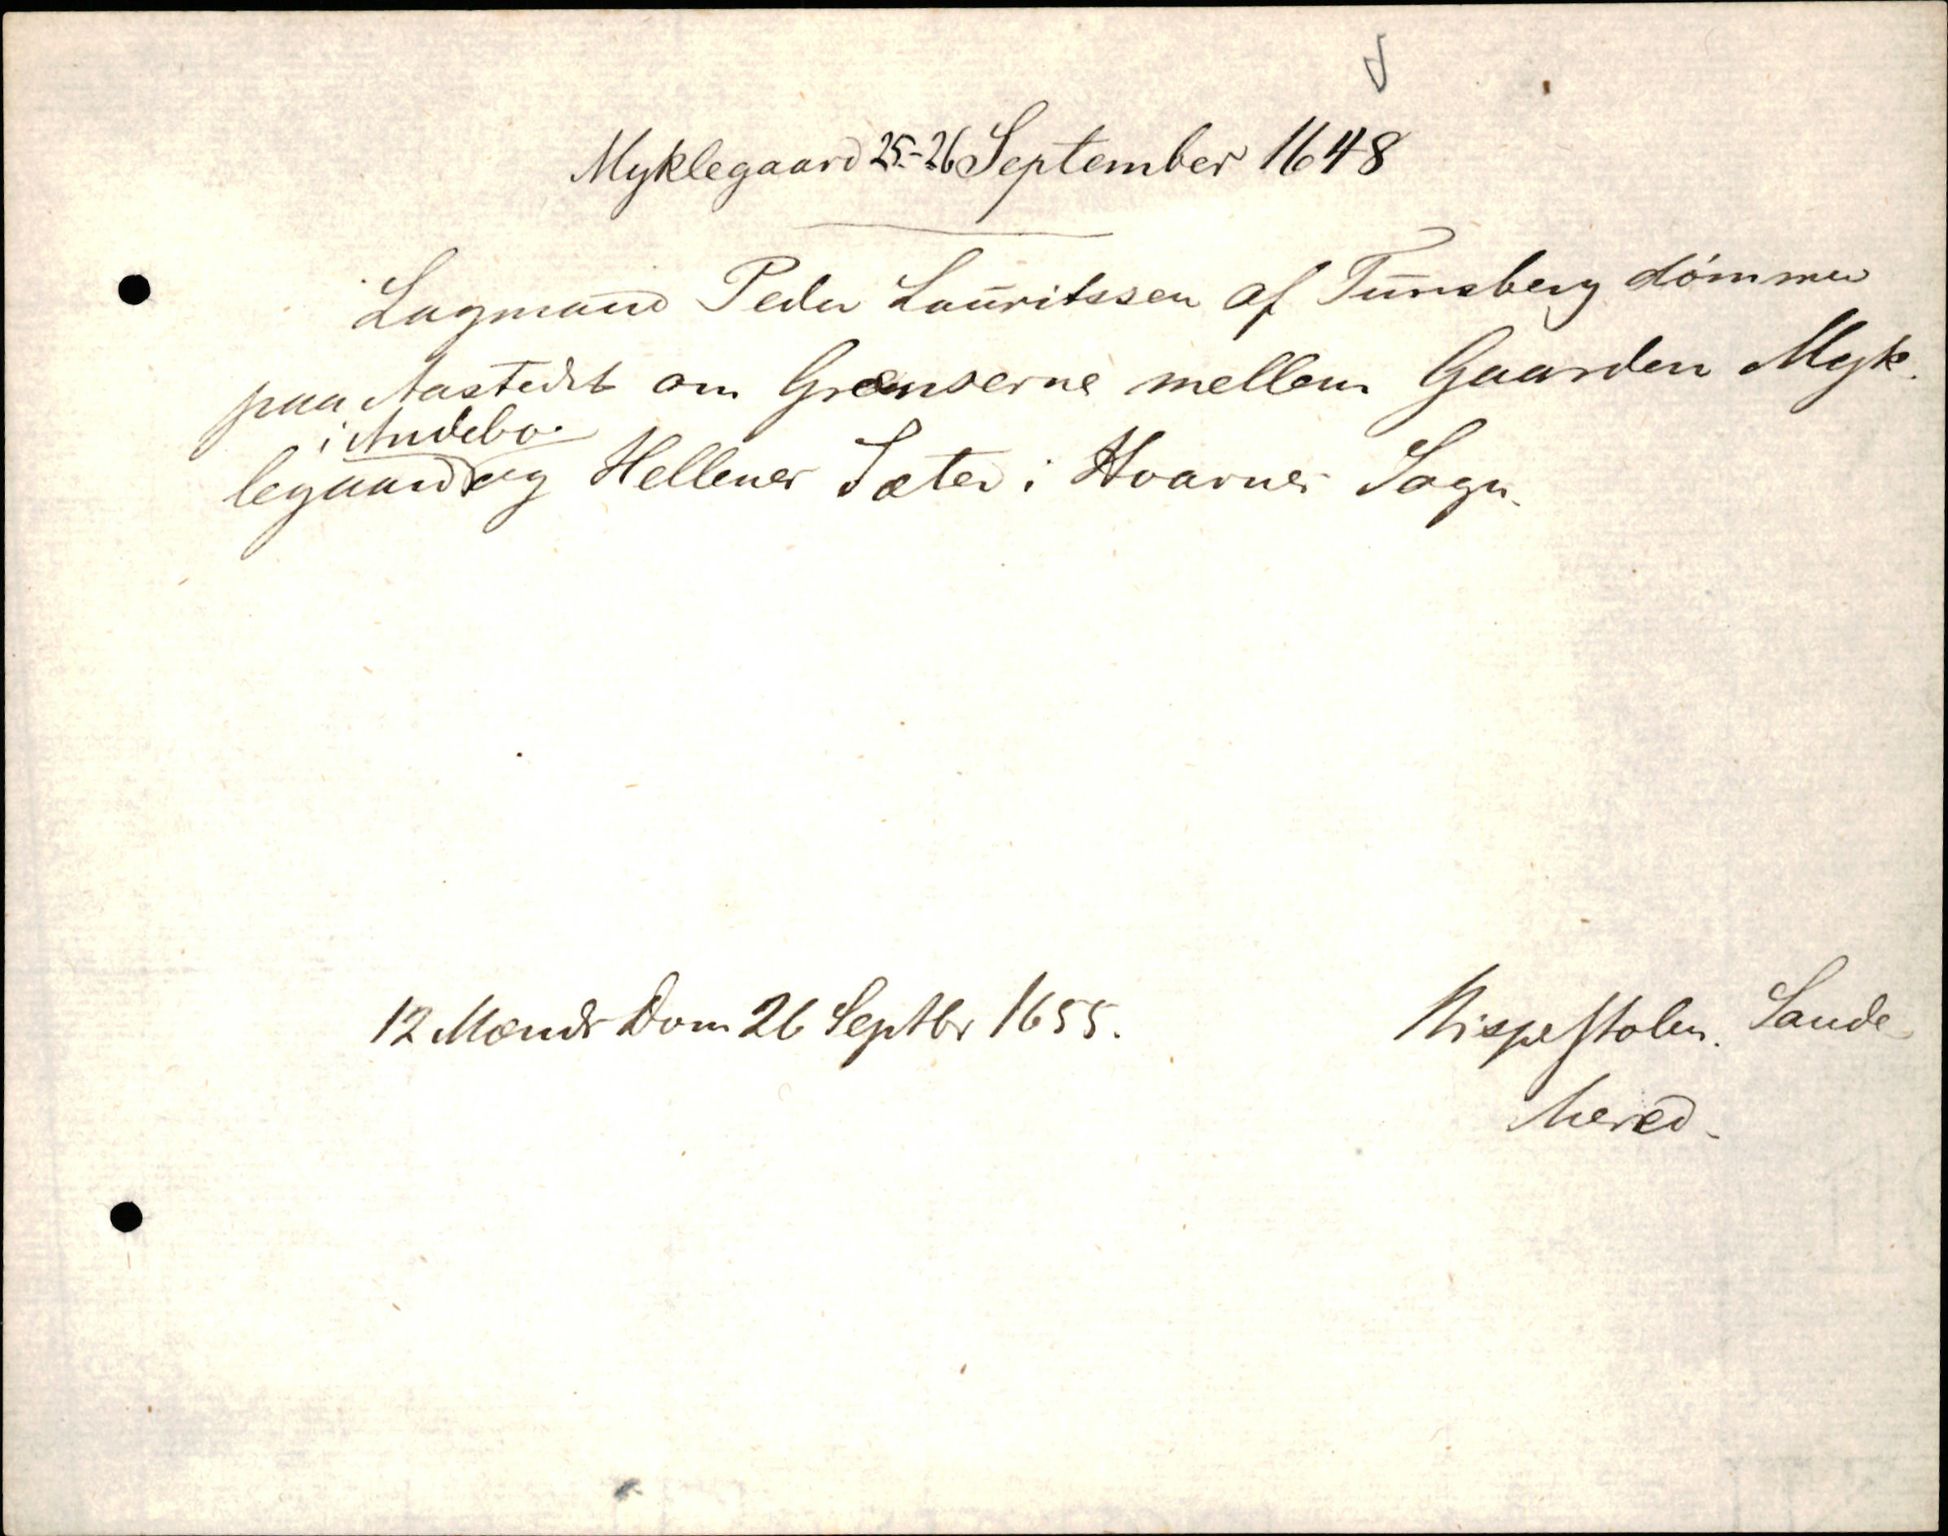 Myklegaard 25.-26 September 1648
Lagmand Peder Lauritssen af Tunsberg dømmer
paa Aastedet om Grænserne mellem Gaarden Myk-
i Andebo
legaard og Hellenes Sæter i Hvarnes Sogn.
12 Mænds Dom 26 Septbr 1655.
Rispestolen. Sande
hered.